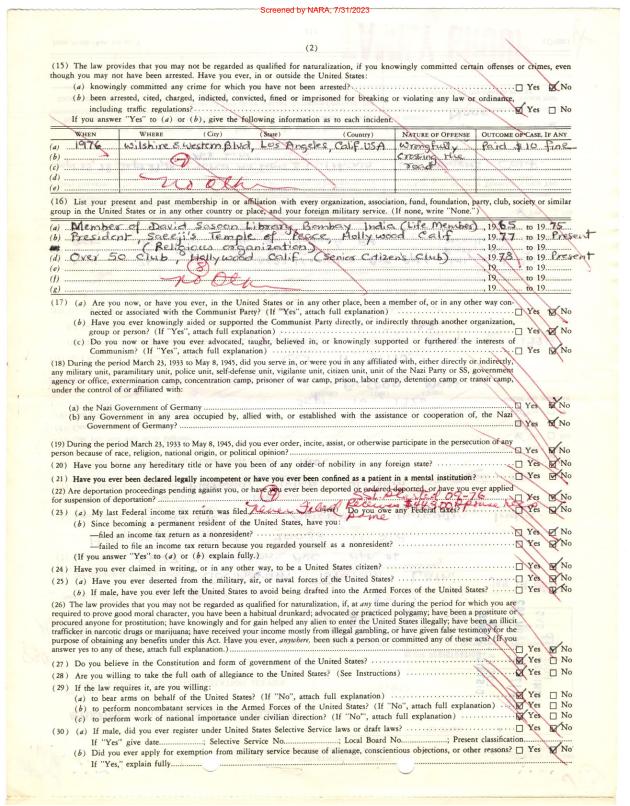 Screened by NARA, 7/31/2023
(2)
(15) The law provides that you may not be regarded as qualified for naturalization, if you knowingly committed certain offenses or crimes, even
though you may not have been arrested. Have you ever, in or outside the United States:
(a) knowingly committed any crime for which you have not been arrested? ☐ Yes ☒ No
(b) been arrested, cited, charged, indicted, convicted, fined or imprisoned for breaking or violating any law or ordinance,
including traffic regulations? ☒ Yes ☐ No
If you answer "Yes" to (a) or (b), give the following information as to each incident.
WHEN WHERE (City) (State) (Country) NATURE OF OFFENSE OUTCOME OF CASE, IF ANY
(a) 1976 Wilshire & Western Blvd, Los Angeles, Calif. USA Wrongfully Paid $10 fine
(b) 7 Crossing the
(c) road
(d) No Other
(e)
(16) List your present and past membership in or affiliation with every organization, association, fund, foundation, party, club, society or similar
group in the United States or in any other country or place, and your foreign military service. (If none, write "None.")
(a) Member of David Sasoon Library, Bombay India (Life Member) 1965 to 1975
(b) President, Saeeji's Temple of Peace, Hollywood Calif 1977 to 19 Present
(Religious organization) 19 to 19
(d) Over 50 Club, Hollywood Calif (Senior Citizen's Club) 1978 to 19 Present
(e) 8 19 to 19
(f) No Other 19 to 19
(g) 19 to 19
(17) (a) Are you now, or have you ever, in the United States or in any other place, been a member of, or in any other way con-
nected or associated with the Communist Party? (If "Yes", attach full explanation) ☐ Yes ☒ No
(b) Have you ever knowingly aided or supported the Communist Party directly, or indirectly through another organization,
group or person? (If "Yes", attach full explanation) ☐ Yes ☒ No
(c) Do you now or have you ever advocated, taught, believed in, or knowingly supported or furthered the interests of
Communism? (If "Yes", attach full explanation) ☐ Yes ☒ No
(18) During the period March 23, 1933 to May 8, 1945, did you serve in, or were you in any affiliated with, either directly or indirectly,
any military unit, paramilitary unit, police unit, self-defense unit, vigilante unit, citizen unit, unit of the Nazi Party or SS, government
agency or office, extermination camp, concentration camp, prisoner of war camp, prison, labor camp, detention camp or transit camp,
under the control of or affiliated with:
(a) the Nazi Government of Germany ☐ Yes ☒ No
(b) any Government in any area occupied by, allied with, or established with the assistance or cooperation of, the Nazi
Government of Germany? ☐ Yes ☒ No
(19) During the period March 23, 1933 to May 8, 1945, did you ever order, incite, assist, or otherwise participate in the persecution of any
person because of race, religion, national origin, or political opinion? ☐ Yes ☒ No
(20) Have you borne any hereditary title or have you been of any order of nobility in any foreign state? ☐ Yes ☒ No
(21) Have you ever been declared legally incompetent or have you ever been confined as a patient in a mental institution? ☐ Yes ☒ No
(22) Are deportation proceedings pending against you, or have you ever been deported or ordered deported, or have you ever applied
for suspension of deportation? ☐ Yes ☒ No
(23) (a) My last Federal income tax return was filed Never Filed Do you owe any Federal taxes? ☐ Yes ☒ No
(b) Since becoming a permanent resident of the United States, have you:
—filed an income tax return as a nonresident? ☐ Yes ☒ No
—failed to file an income tax return because you regarded yourself as a nonresident? ☐ Yes ☒ No
(If you answer "Yes" to (a) or (b) explain fully.)
(24) Have you ever claimed in writing, or in any other way, to be a United States citizen? ☐ Yes ☒ No
(25) (a) Have you ever deserted from the military, air, or naval forces of the United States? ☐ Yes ☒ No
(b) If male, have you ever left the United States to avoid being drafted into the Armed Forces of the United States? ☐ Yes ☒ No
(26) The law provides that you may not be regarded as qualified for naturalization, if, at any time during the period for which you are
required to prove good moral character, you have been a habitual drunkard; advocated or practiced polygamy; have been a prostitute or
procured anyone for prostitution; have knowingly and for gain helped any alien to enter the United States illegally; have been an illicit
trafficker in narcotic drugs or marijuana; have received your income mostly from illegal gambling, or have given false testimony for the
purpose of obtaining any benefits under this Act. Have you ever, anywhere, been such a person or committed any of these acts? (If you
answer yes to any of these, attach full explanation.) ☐ Yes ☒ No
(27) Do you believe in the Constitution and form of government of the United States? ☒ Yes ☐ No
(28) Are you willing to take the full oath of allegiance to the United States? (See Instructions) ☒ Yes ☐ No
(29) If the law requires it, are you willing:
(a) to bear arms on behalf of the United States? (If "No", attach full explanation) ☒ Yes ☐ No
(b) to perform noncombatant services in the Armed Forces of the United States? (If "No", attach full explanation) ☒ Yes ☐ No
(c) to perform work of national importance under civilian direction? (If "No", attach full explanation) ☒ Yes ☐ No
(30) (a) If male, did you ever register under United States Selective Service laws or draft laws? ☐ Yes ☒ No
If "Yes" give date ; Selective Service No. ; Local Board No. ; Present classification
(b) Did you ever apply for exemption from military service because of alienage, conscientious objections, or other reasons? ☐ Yes ☒ No
If "Yes," explain fully